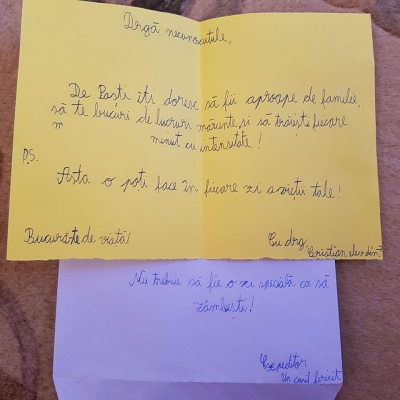 Drgă necunoscutule,
De Paști îți doresc să fii aproape de familie,
să te bucuri de lucruri mărunte și să trăiești fiecare
m minut cu intensitate!
P.S.
Asta o poți face în fiecare zi a vieții tale!
Bucură-te de viață!
Cu drag,
Cristian
Nu trebuie să fie o zi specială ca să
zâmbești!
Expeditor
Un copil fericit